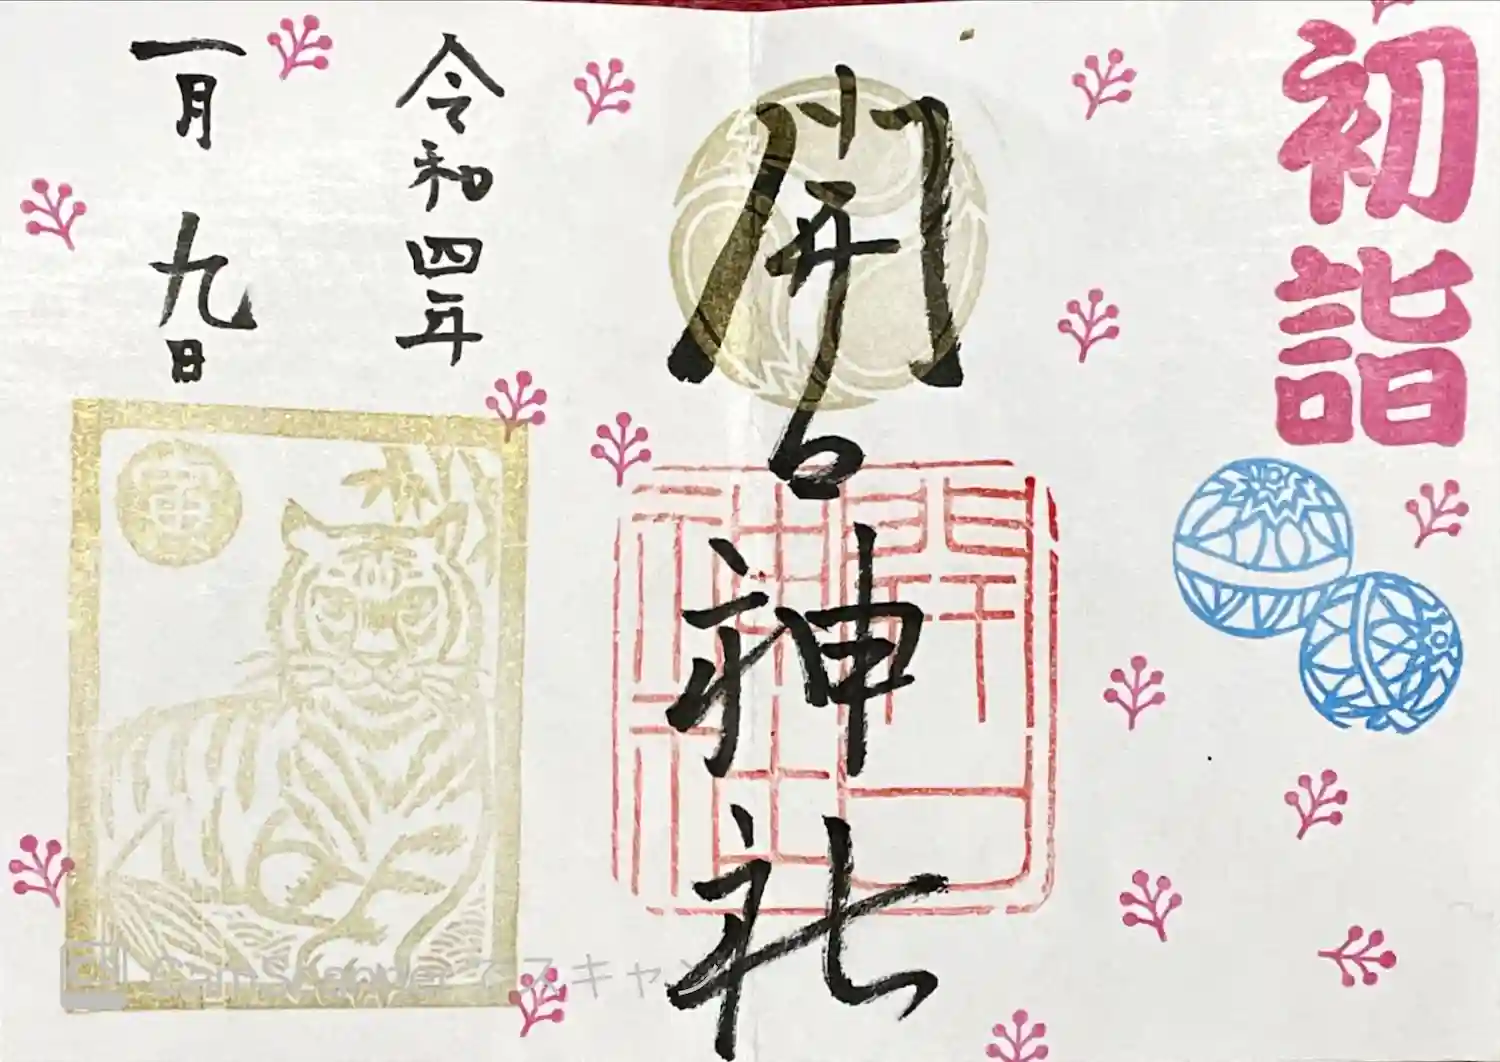 初詣
開口神社
開口神社
令和四年
一月九日
寅
CamScannerでスキャン